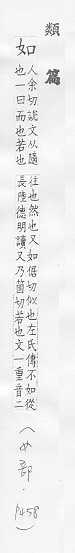 類篇
如
人余切說文从隨
也一曰而也若也
往也然也又如倨切似也左氏傳不如從
長陸德明讀又乃箇切若也文一重音二
（女部・P458）